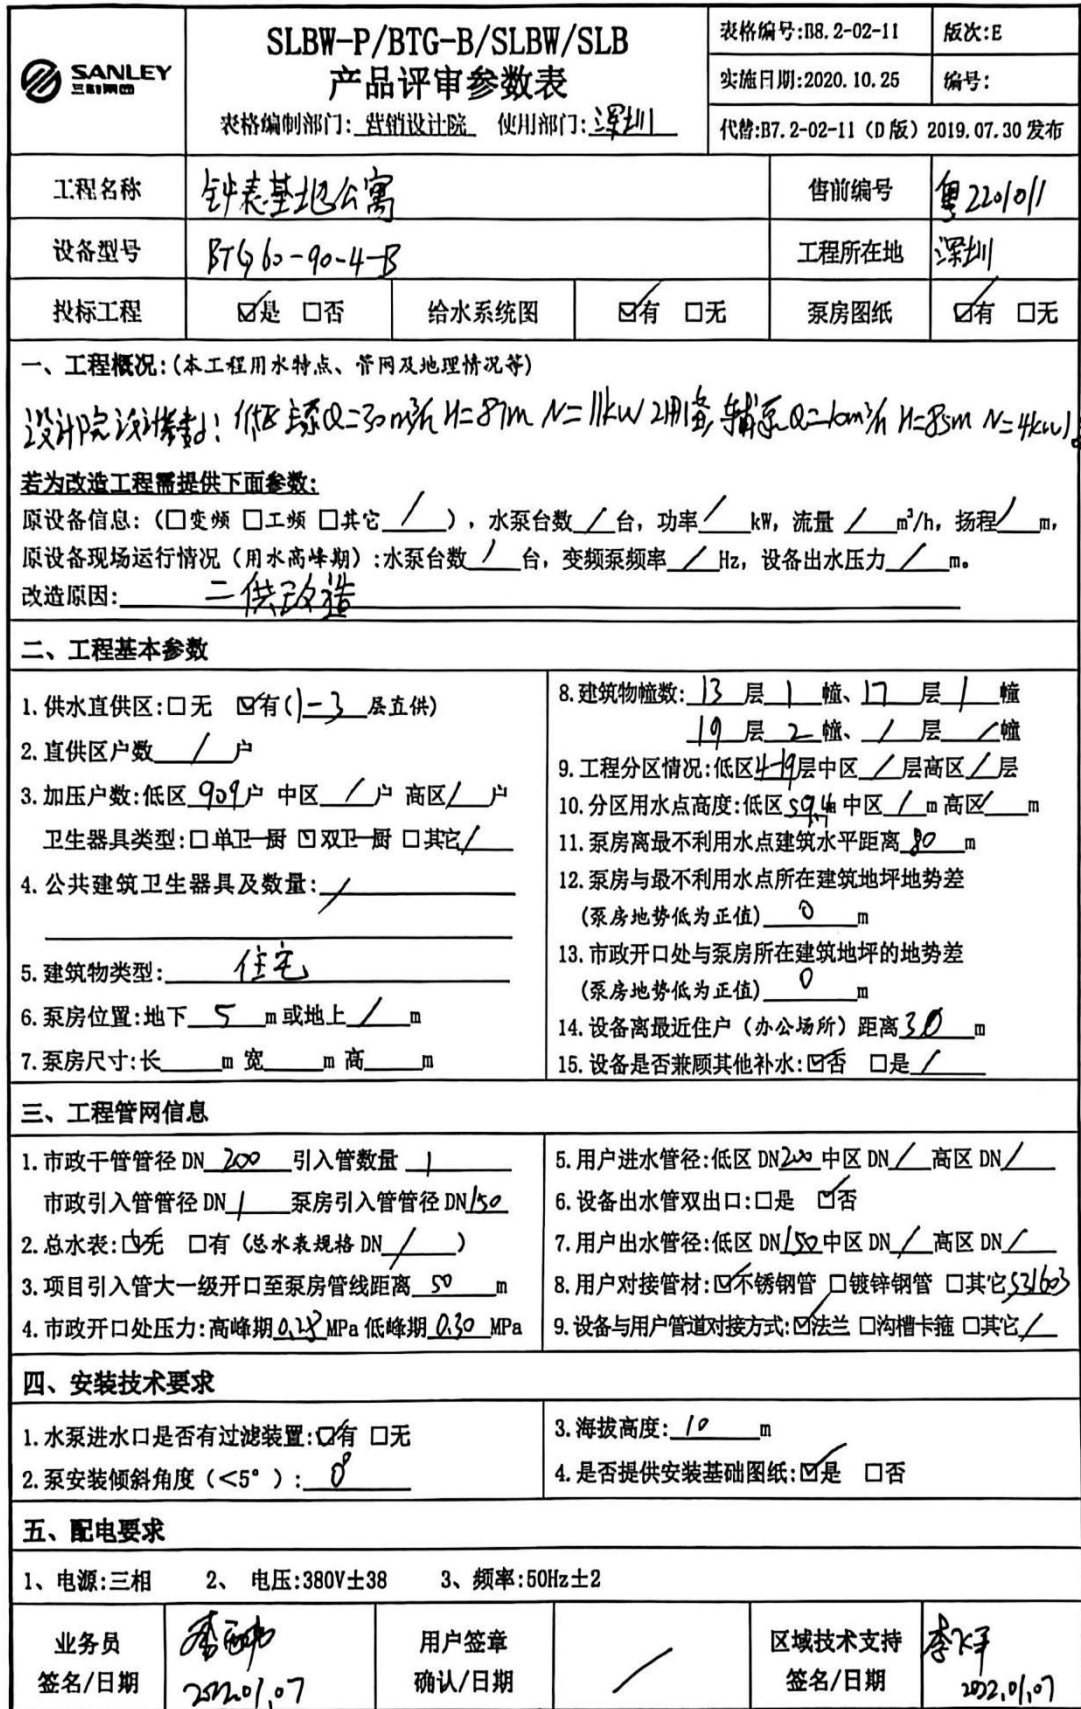 SANLEY
三利集团
SLBW-P/BTG-B/SLBW/SLB
产品评审参数表
表格编制部门:营销设计院 使用部门:深圳
表格编号:B8.2-02-11 版次:E
实施日期:2020.10.25 编号:
代替:B7.2-02-11（D版）2019.07.30发布
工程名称 钟表基地公寓 售前编号 粤2201011
设备型号 BTG60-90-4-B 工程所在地 深圳
投标工程 ☑是 □否 给水系统图 ☑有 □无 泵房图纸 ☑有 □无
一、工程概况:(本工程用水特点、管网及地理情况等)
设计院设计参数: 低区主泵Q=30m³/h H=87m N=11kW 2用1备, 辅泵Q=10m³/h H=85m N=4kW 1
若为改造工程需提供下面参数:
原设备信息:（□变频 □工频 □其它 / ），水泵台数 / 台，功率 / kW，流量 / m³/h，扬程 / m，
原设备现场运行情况（用水高峰期）:水泵台数 / 台，变频泵频率 / Hz，设备出水压力 / m。
改造原因: 二供改造
二、工程基本参数
1.供水直供区:□无 ☑有(1-3层直供)
2.直供区户数 / 户
3.加压户数:低区 909户 中区 / 户 高区 / 户
卫生器具类型:□单卫一厨 ☑双卫一厨 □其它 /
4.公共建筑卫生器具及数量: /
5.建筑物类型: 住宅
6.泵房位置:地下 5 m或地上 / m
7.泵房尺寸:长 m 宽 m 高 m
8.建筑物幢数: 13 层 1 幢、17 层 1 幢
19 层 2 幢、 / 层 / 幢
9.工程分区情况:低区4-19层中区 / 层高区 / 层
10.分区用水点高度:低区59.4m 中区 / m高区 / m
11.泵房离最不利用水点建筑水平距离 80 m
12.泵房与最不利用水点所在建筑地坪地势差
(泵房地势低为正值) 0 m
13.市政开口处与泵房所在建筑地坪的地势差
(泵房地势低为正值) 0 m
14.设备离最近住户（办公场所）距离 30 m
15.设备是否兼顾其他补水:☑否 □是 /
三、工程管网信息
1.市政干管管径DN 200 引入管数量 1
市政引入管管径DN / 泵房引入管管径DN 150
2.总水表:☑无 □有（总水表规格DN / ）
3.项目引入管大一级开口至泵房管线距离 50 m
4.市政开口处压力:高峰期 0.28 MPa 低峰期 0.30 MPa
5.用户进水管径:低区DN 200 中区DN / 高区DN /
6.设备出水管双出口:□是 ☑否
7.用户出水管径:低区DN 150 中区DN / 高区DN /
8.用户对接管材:☑不锈钢管 □镀锌钢管 □其它 S31603
9.设备与用户管道对接方式:☑法兰 □沟槽卡箍 □其它 /
四、安装技术要求
1.水泵进水口是否有过滤装置:☑有 □无
2.泵安装倾斜角度（<5°）: 0°
3.海拔高度: 10 m
4.是否提供安装基础图纸:☑是 □否
五、配电要求
1、电源:三相 2、 电压:380V±38 3、频率:50Hz±2
业务员
签名/日期
2022.01.07
用户签章
确认/日期
/
区域技术支持
签名/日期
2022.01.07